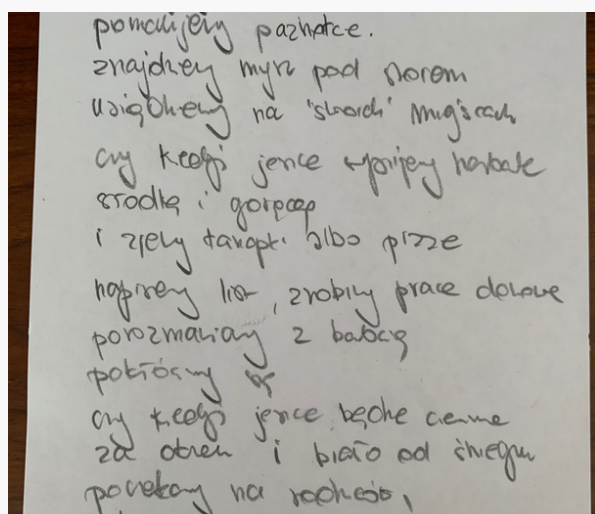 pomalujemy paznokcie.
znajdziemy mysz pod stołem
usiądziemy na 'swoich' miejscach
czy kiedyś jeszcze wypijemy herbatę
słodką i gorącą
i zjemy kanapki albo pizze
napiszemy list, zrobimy prace domowe
porozmawiamy z babcią
pokłócimy się
czy kiedyś jeszcze będzie ciemno
za oknem i biało od śniegu
poczekamy na